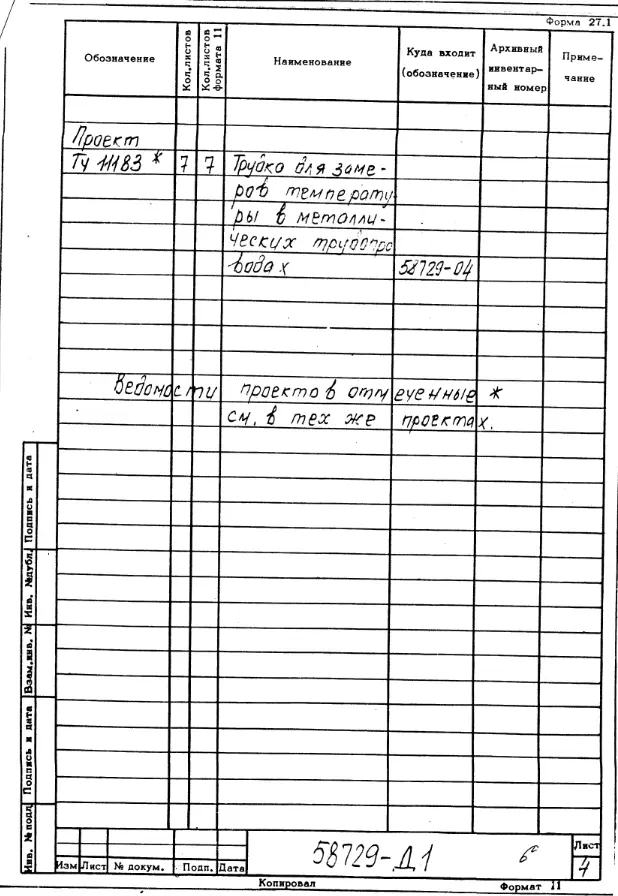 Форма 27.1
Обозначение Кол.листов Кол.листов формата 11 Наименование Куда входит (обозначение) Архивный инвентар-ный номер Приме-чание
Проект
ТУ 11183 * 7 7 Трубка для заме-
ров температу
ры в металли-
ческих трубопро
водах 58729-04
Ведомости проектов отмеченные *
см. в тех же проектах.
Инв. № подл Подпись и дата Взам.инв. № Инв. №дубл. Подпись и дата
Изм Лист № докум. Подп. Дата
58729-Д1
Лист
4
Копировал Формат 11